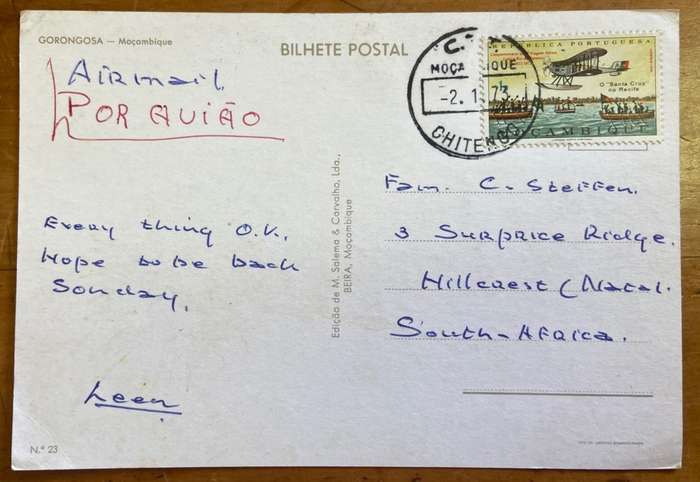 GORONGOSA — Moçambique
BILHETE POSTAL
AIRMAIL
POR AVIÃO
C.T.T.
MOÇAMBIQUE
-2. 1. 73
CHITENGO
REPÚBLICA PORTUGUESA
O "Santa Cruz"
no Recife
MOÇAMBIQUE
Fam. C. Steffen.
3 Surprice Ridge.
Hillcrest (Natal.
South-Africa.
Every thing O.K.,
Hope to be back
Sonday,
Leen
Edição de M. Salema & Carvalho, Lda.,
BEIRA, Moçambique
N.º 23